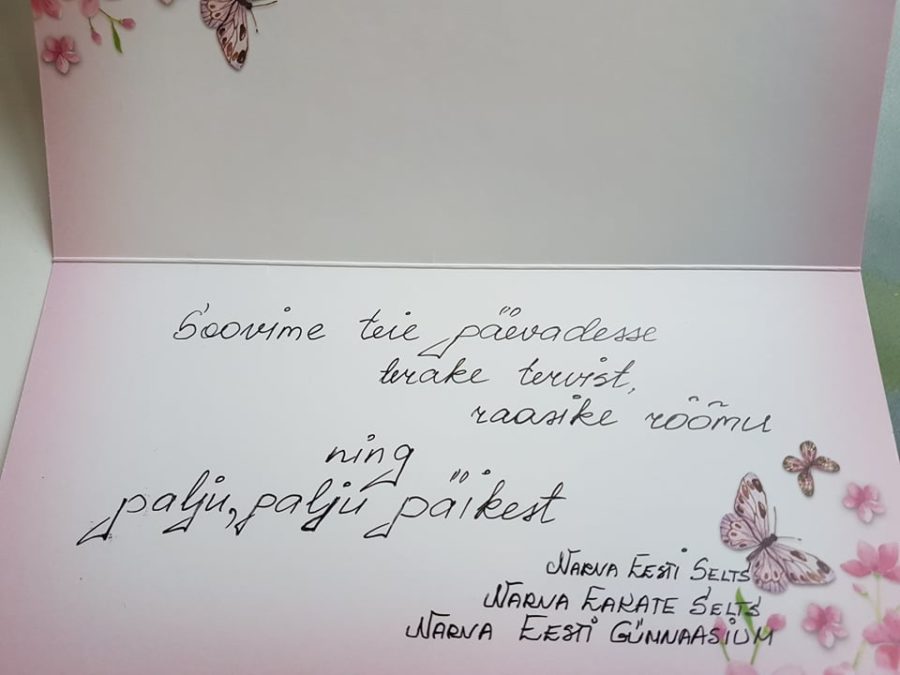 Soovime teie päevadesse
terake tervist,
raasike rõõmu
ning
palju, palju päikest
Narva Eesti Selts
Narva Eakate Selts
Narva Eesti Gümnaasium